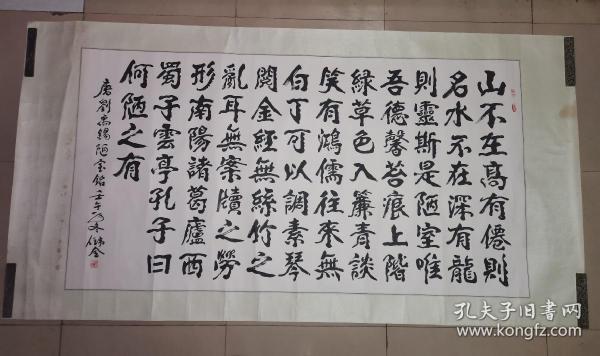 山不在高有僊則
名水不在深有龍
則靈斯是陋室唯
吾德馨苔痕上階
綠草色入簾青談
笑有鴻儒往來無
白丁可以調素琴
閱金經無絲竹之
亂耳無案牘之勞
形南陽諸葛廬西
蜀子雲亭孔子曰
何陋之有
唐劉禹錫陋室銘壬午
孔夫子旧书网
www.kongfz.com